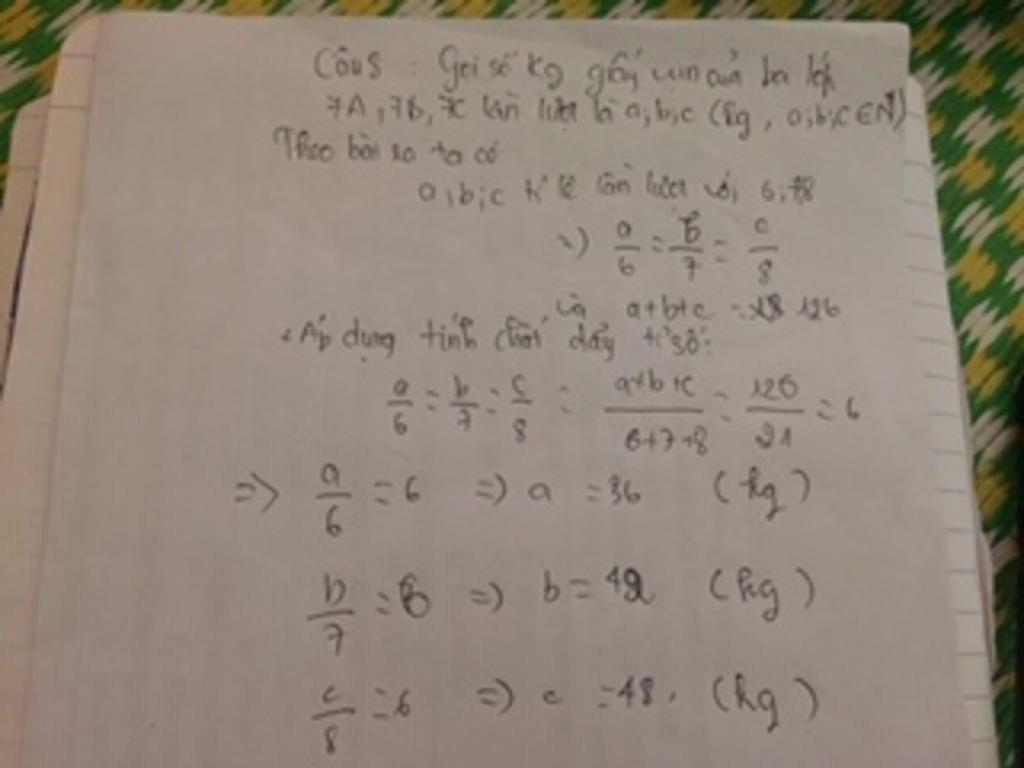 Câu 5 : Gọi số kg giấy vụn của ba lớp
7A, 7B, 7C lần lượt là a;b;c (kg, a;b;c ∈ N*)
Theo bài ra ta có
a;b;c tỉ lệ lần lượt với 6;7;8
=> a/6 = b/7 = c/8
và a+b+c = 126
Áp dụng tính chất dãy tỉ số:
a/6 = b/7 = c/8 = (a+b+c)/(6+7+8) = 126/21 = 6
=> a/6 = 6 => a = 36 (kg)
b/7 = 6 => b = 42 (kg)
c/8 = 6 => c = 48. (kg)